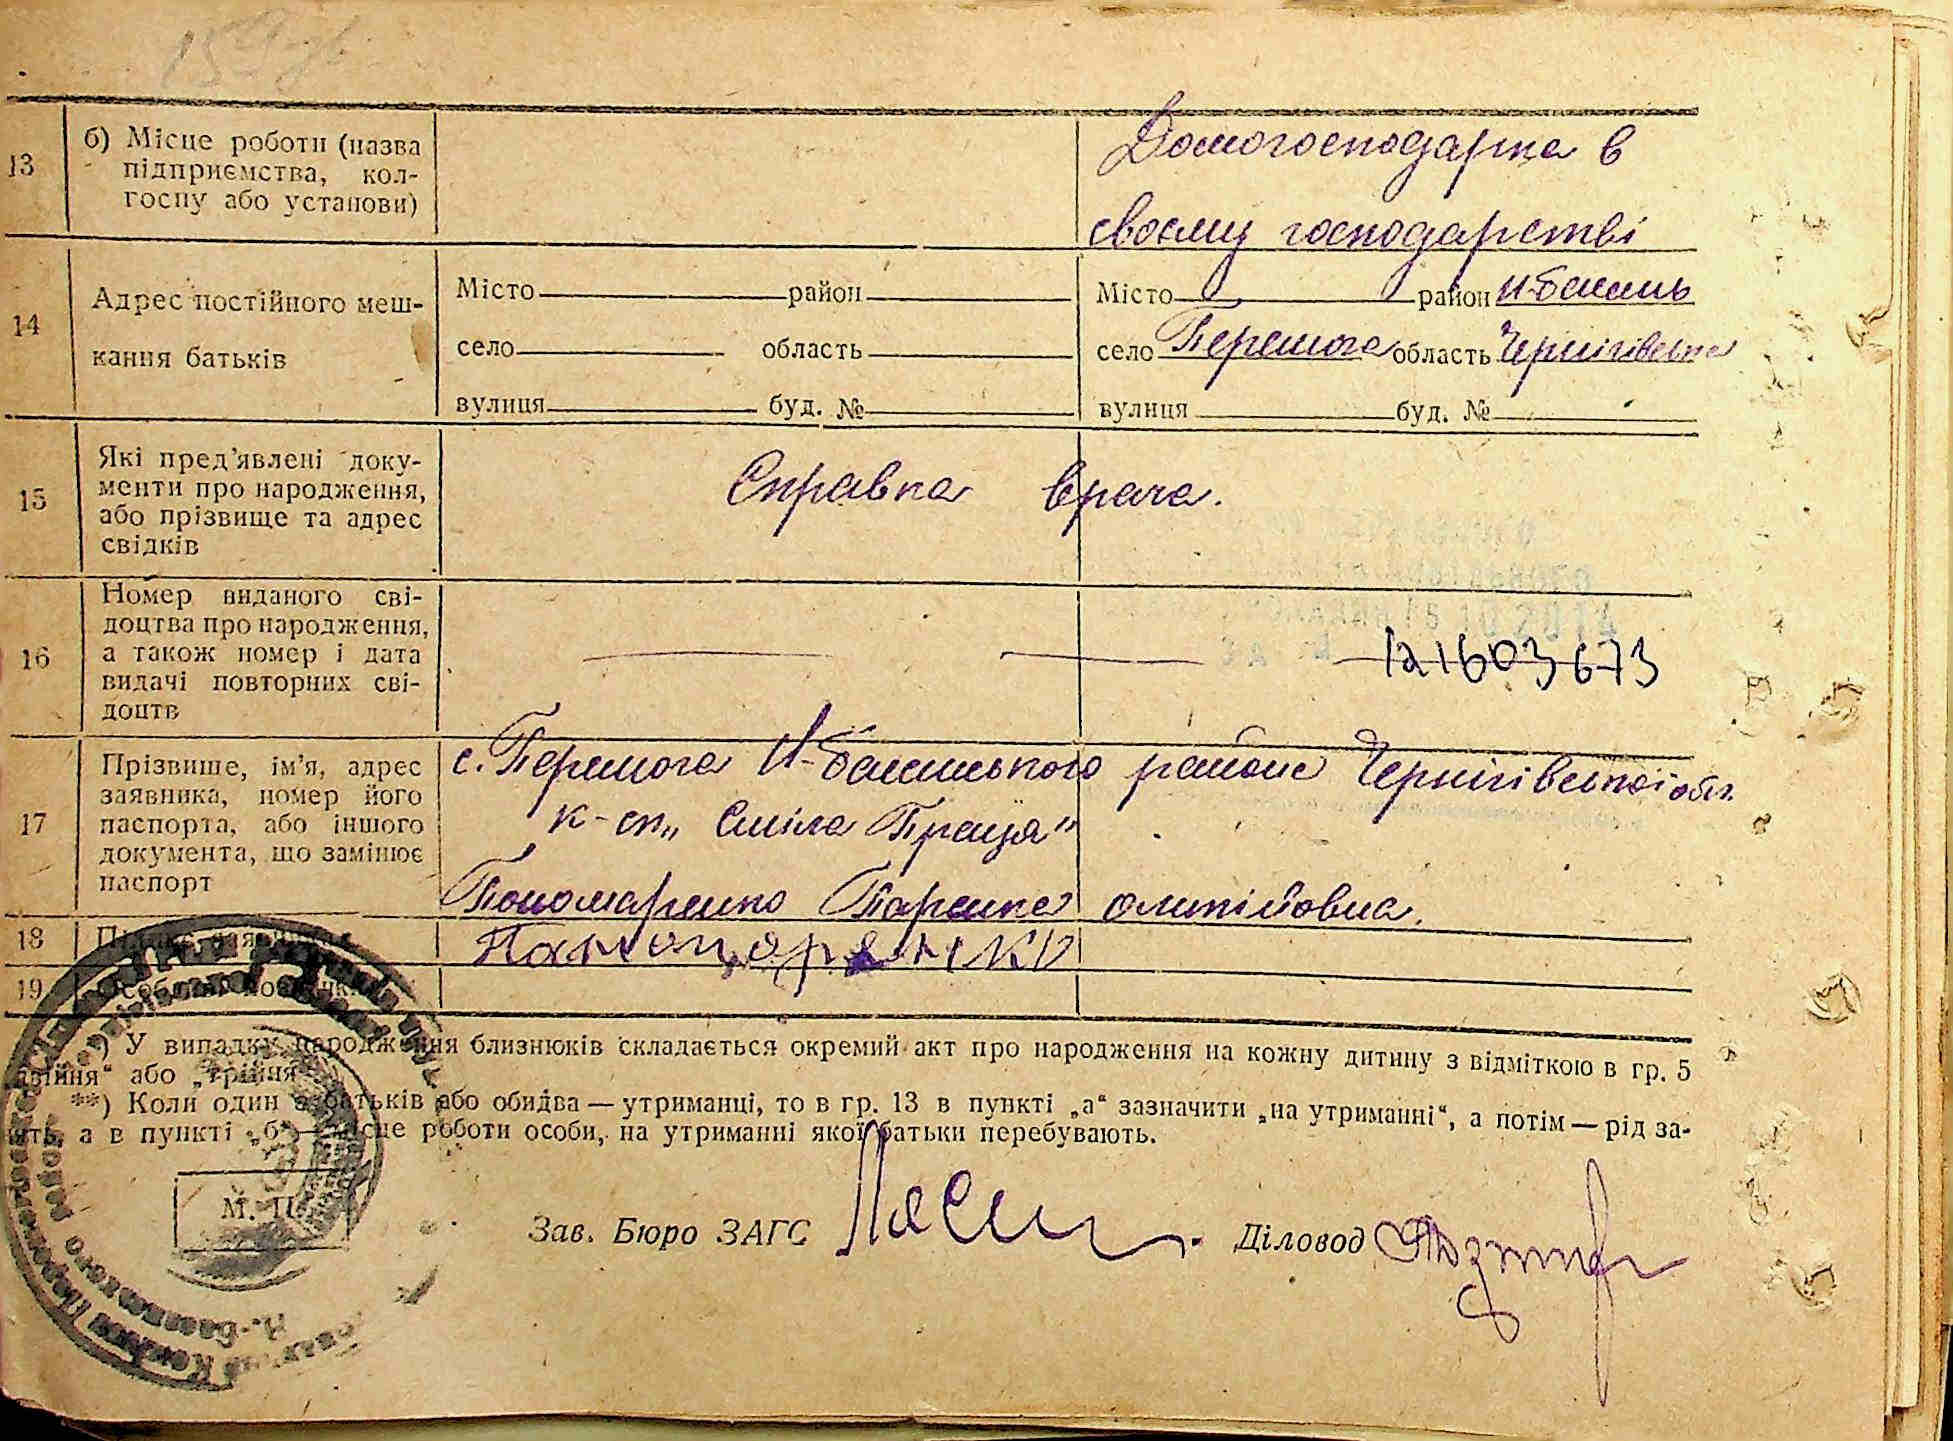 159
13
б) Місце роботи (назва
підприємства, кол-
госпу або установи)
Домогосподарка в
своєму господарстві
14
Адрес постійного меш-
кання батьків
Місто район
село область
вулиця буд. №
Місто район И-Базань
село Перемога область Чернігівська
вулиця буд. №
15
Які пред'явлені доку-
менти про народження,
або прізвище та адрес
свідків
Справка врача.
16
Номер виданого сві-
доцтва про народження,
а також номер і дата
видачі повторних сві-
доцтв
1603673
17
Прізвище, ім'я, адрес
заявника, номер його
паспорта, або іншого
документа, що замінює
паспорт
с. Перемога И-базанського района Чернігівської обл.
к-сп „Сміла Праця"
Пономаренко Параска
18
19
*) У випадку народження близнюків складається окремий акт про народження на кожну дитину з відміткою в гр. 5
„двійня" або „трійня".
**) Коли один з батьків або обидва — утриманці, то в гр. 13 в пункті „а" зазначити „на утриманні", а потім — рід за-
нять, а в пункті „б" — місце роботи особи, на утриманні якої батьки перебувають.
М. П.
Зав. Бюро ЗАГС Діловод